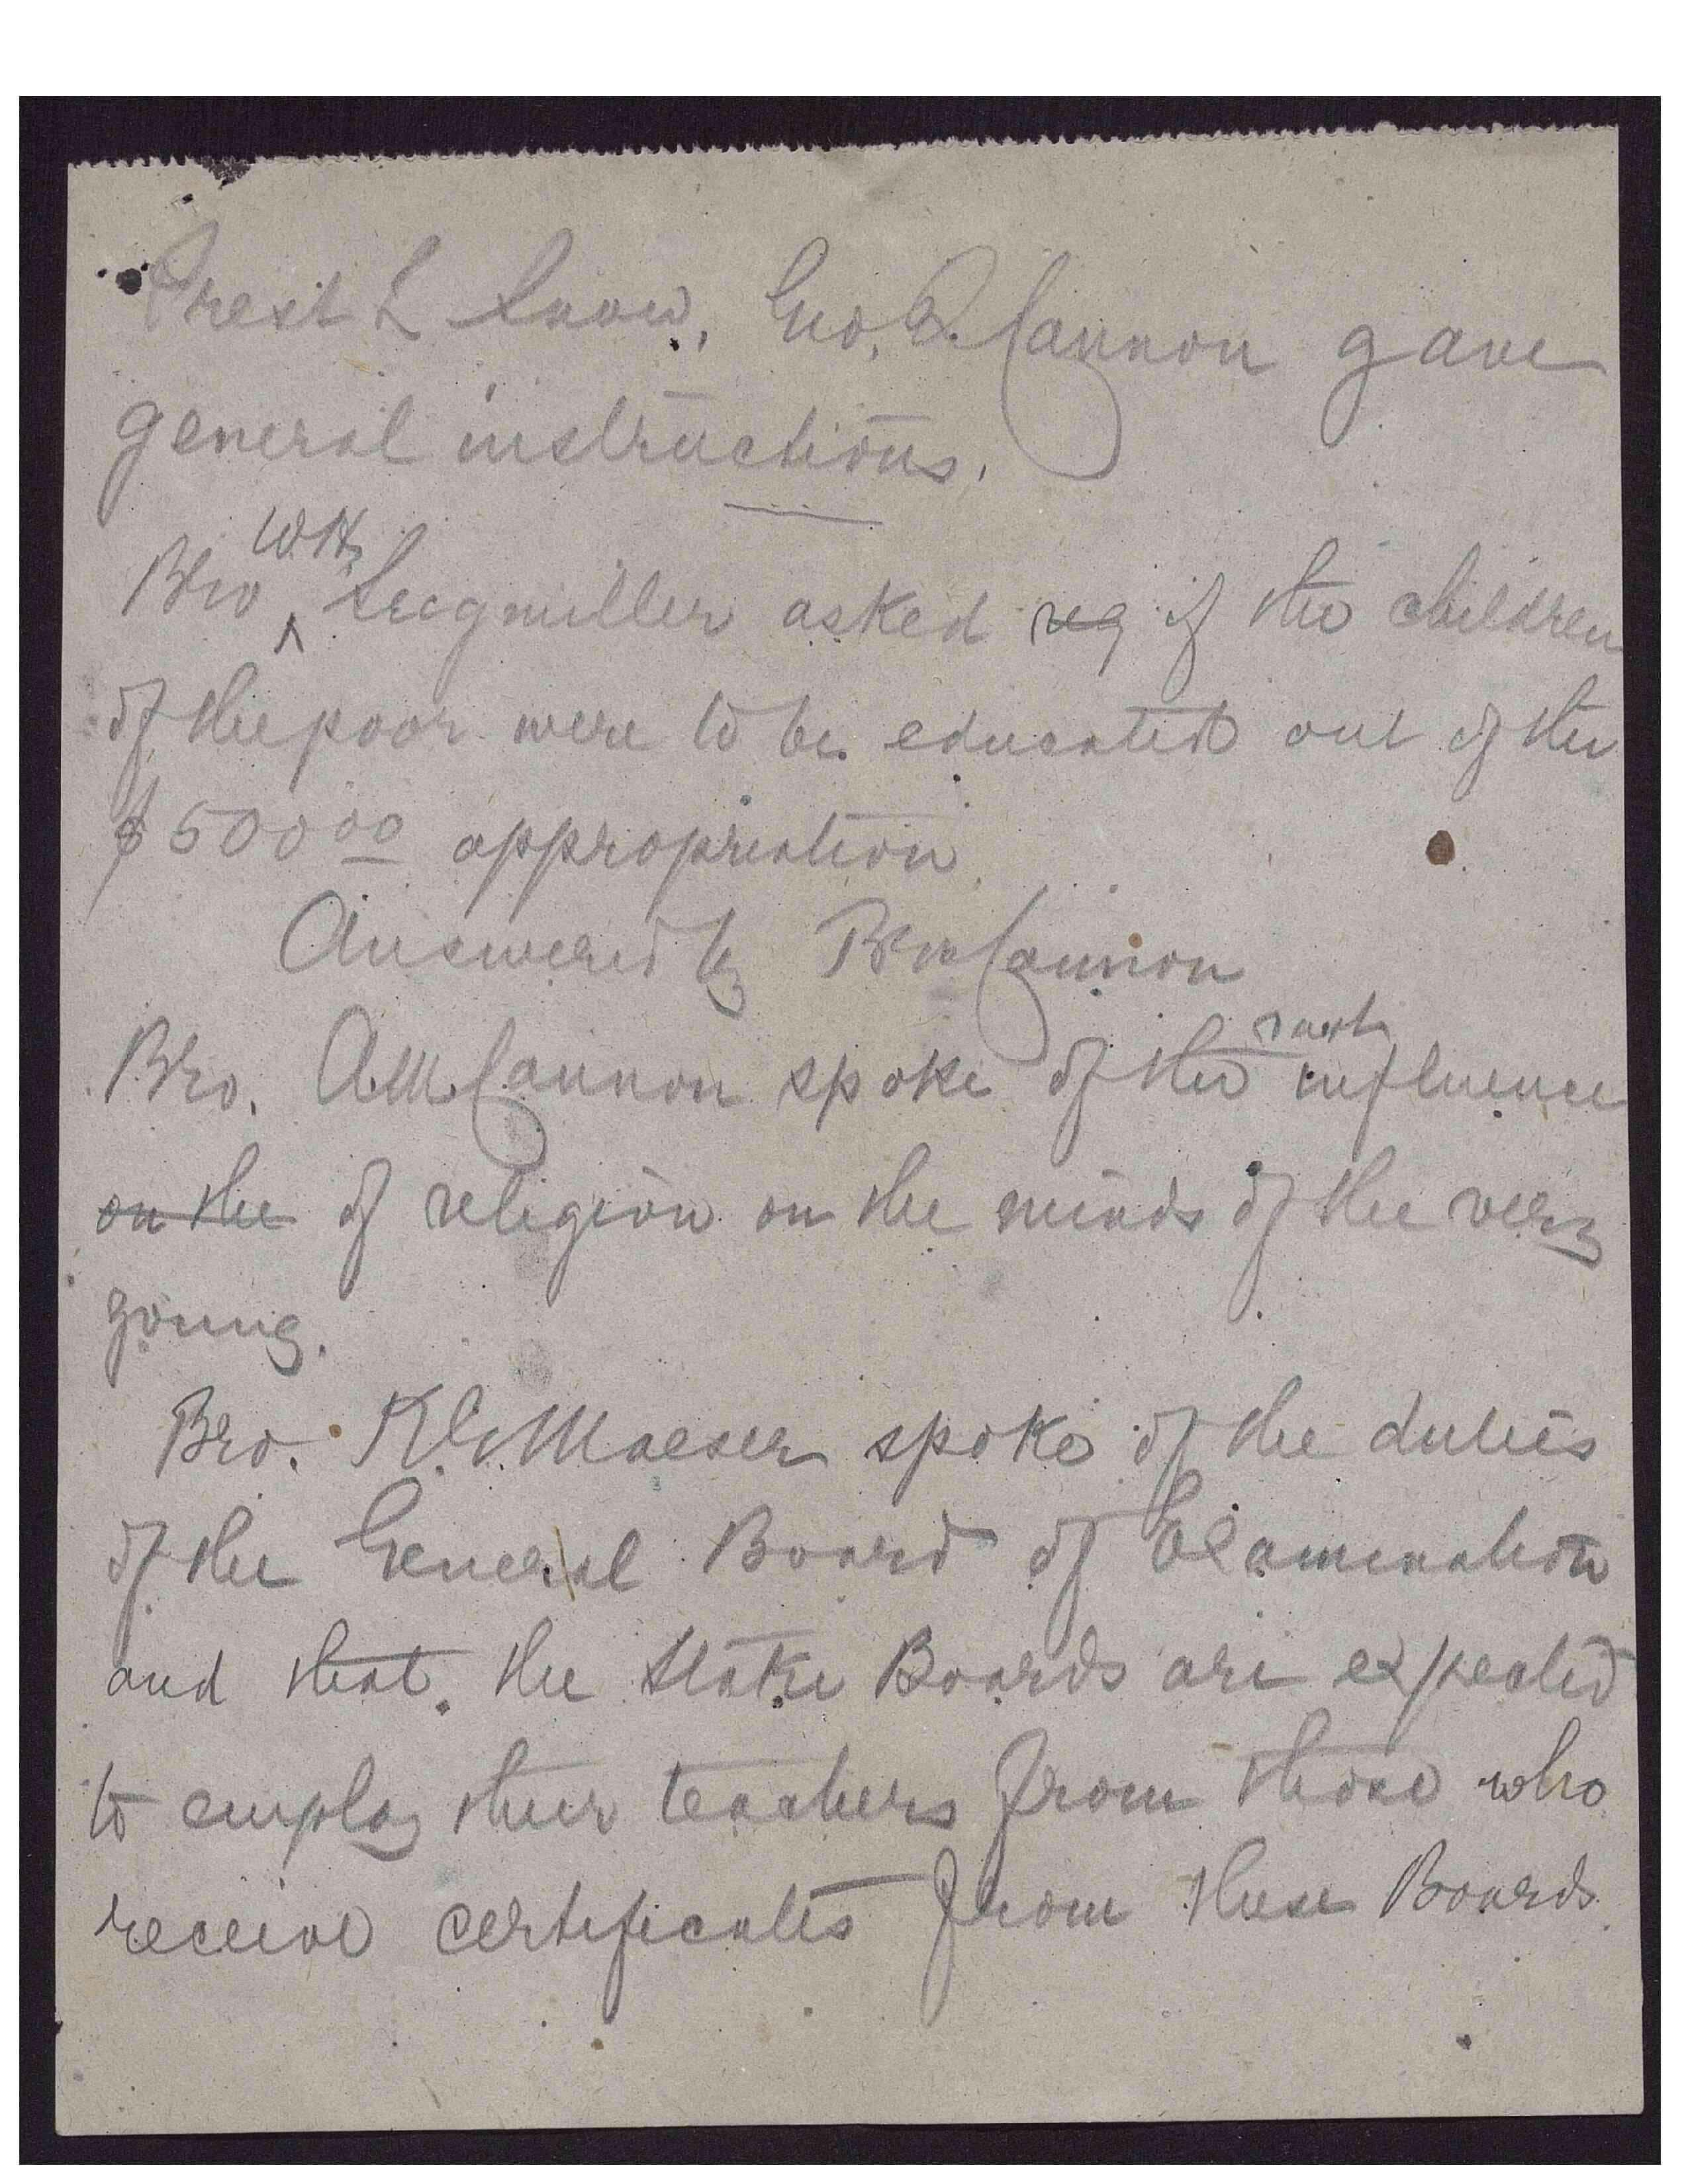 Prest L Snow, Geo. Q. Cannon gave
general instructions.
Bro W H Seegmiller asked reg if the children
of the poor were to be educated out of the
$500 00 appropriation
Answered by Bro Cannon
Bro. A.M. Cannon spoke of the vast influence
on the of religion on the minds of the very
young.
Bro. K. G. Maeser spoke of the duties
of the General Board of Examination
and that. the Stake Boards are expected
to employ their teachers from those who
receive certificates from these Boards.